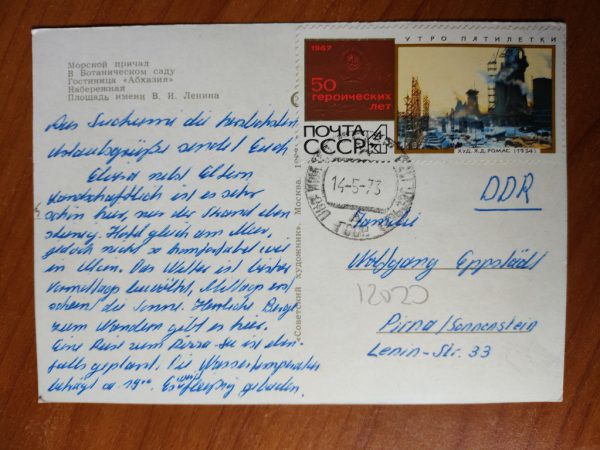 Морской причал
В Ботаническом саду
Гостиница «Абхазия»
Набережная
Площадь имени В. И. Ленина
Aus Suchumi die herzlichsten
Urlaubsgrüße sendet Euch
nebst Eltern
Landschaftlich ist es sehr
schön hier, nur der Strand eben
steinig. Hotel gleich am Meer,
jedoch nicht so komfortabel wie
in Das Wetter ist bisher
vormittags bewölkt, Mittags erst
scheint die Sonne. Herrliche Berge
zum Wandern gibt es hier.
Eine Reise zum Rizza-See ist eben-
falls geplant. Die Wassertemperatur
beträgt ca. 19°. Es wird fleißig gebaden.
«Советский художник». Москва.
1967
50
героических
лет
ПОЧТА
СССР
4
к
УТРО ПЯТИЛЕТКИ
ХУД. Я.Д. РОМАС (1934)
14-5-73
DDR
Familie
Wolfgang Eppstädt
12020
Pirna/Sonnenstein
Lenin-Str. 33